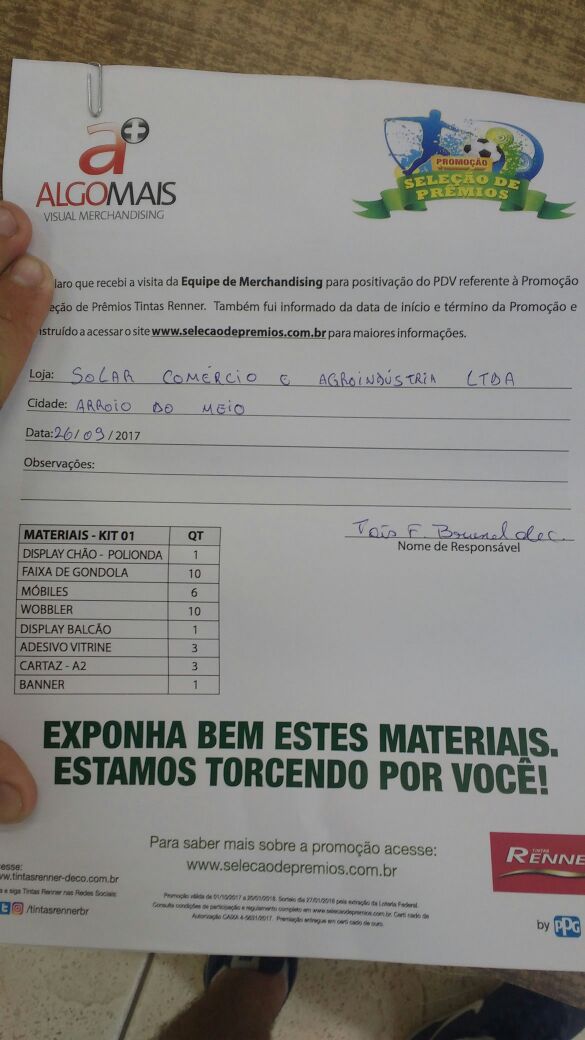 a+
ALGOMAIS
VISUAL MERCHANDISING
PROMOÇÃO
SELEÇÃO DE
PRÊMIOS
laro que recebi a visita da Equipe de Merchandising para positivação do PDV referente à Promoção
eção de Prêmios Tintas Renner. Também fui informado da data de início e término da Promoção e
struído a acessar o site www.selecaodepremios.com.br para maiores informações.
Loja: SOLAR COMÉRCIO E AGROINDÚSTRIA LTDA
Cidade: ARROIO DO MEIO
Data: 26/09/2017
Observações:
Nome de Responsável
MATERIAIS - KIT 01 QT
DISPLAY CHÃO - POLIONDA 1
FAIXA DE GONDOLA 10
MÓBILES 6
WOBBLER 10
DISPLAY BALCÃO 1
ADESIVO VITRINE 3
CARTAZ - A2 3
BANNER 1
EXPONHA BEM ESTES MATERIAIS.
ESTAMOS TORCENDO POR VOCÊ!
Para saber mais sobre a promoção acesse:
www.selecaodepremios.com.br
TINTAS
RENNE
esse:
ww.tintasrenner-deco.com.br
a e siga Tintas Renner nas Redes Sociais:
/tintasrennerbr
Promoção válida de 01/10/2017 a 20/01/2018. Sorteio dia 27/01/2018 pela extração da Loteria Federal.
Consulte condições de participação e regulamento completo em www.selecaodepremios.com.br. Certi cado de
Autorização CAIXA 4-5631/2017. Premiação entregue em certi cado de ouro.
by PPG